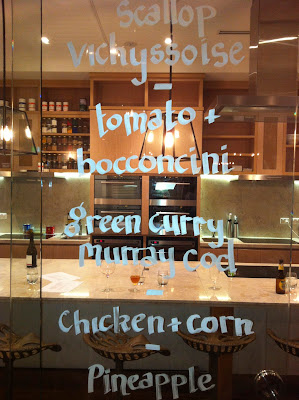 Scallop
Vichyssoise
-
tomato +
bocconcini
-
green curry
murray cod
-
Chicken + corn
-
Pineapple